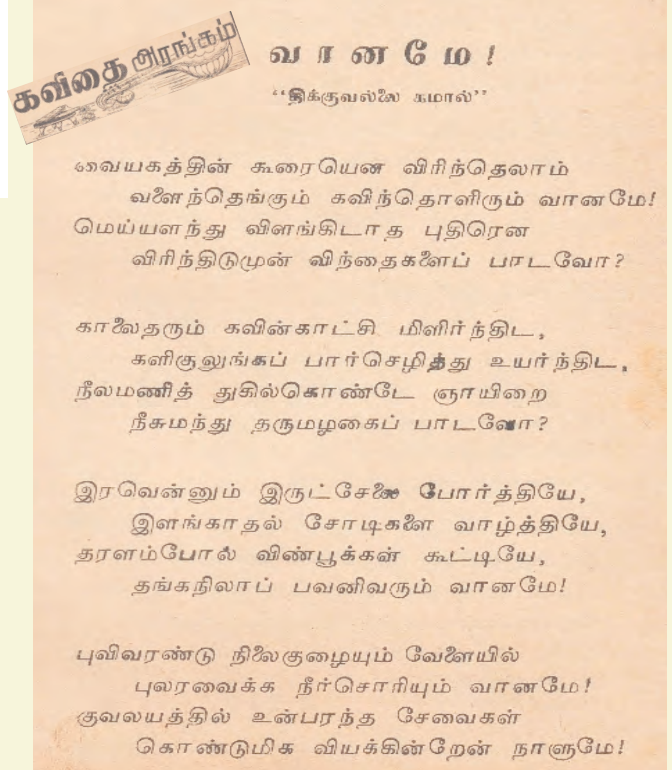 கவிதை அரங்கம்
வானமே!
“திக்குவல்லை கமால்”
வையகத்தின் கூரையென விரிந்தெலாம்
வளைந்தெங்கும் கவிந்தொளிரும் வானமே!
மெய்யளந்து விளங்கிடாத புதிரென
விரிந்திடுமுன் விந்தைகளைப் பாடவோ?
காலைதரும் கவின்காட்சி மிளிர்ந்திட,
களிகுலுங்கப் பார்செழித்து உயர்ந்திட,
நீலமணித் துகில்கொண்டே ஞாயிறை
நீசுமந்து தருமழகைப் பாடவோ?
இரவென்னும் இருட்சேலை போர்த்தியே,
இளங்காதல் சோடிகளை வாழ்த்தியே,
தரளம்போல் விண்பூக்கள் கூட்டியே,
தங்கநிலாப் பவனிவரும் வானமே!
புவிவரண்டு நிலைகுழையும் வேளையில்
புலரவைக்க நீர்சொரியும் வானமே!
குவலயத்தில் உன்பரந்த சேவைகள்
கொண்டுமிக வியக்கின்றேன் நாளுமே!